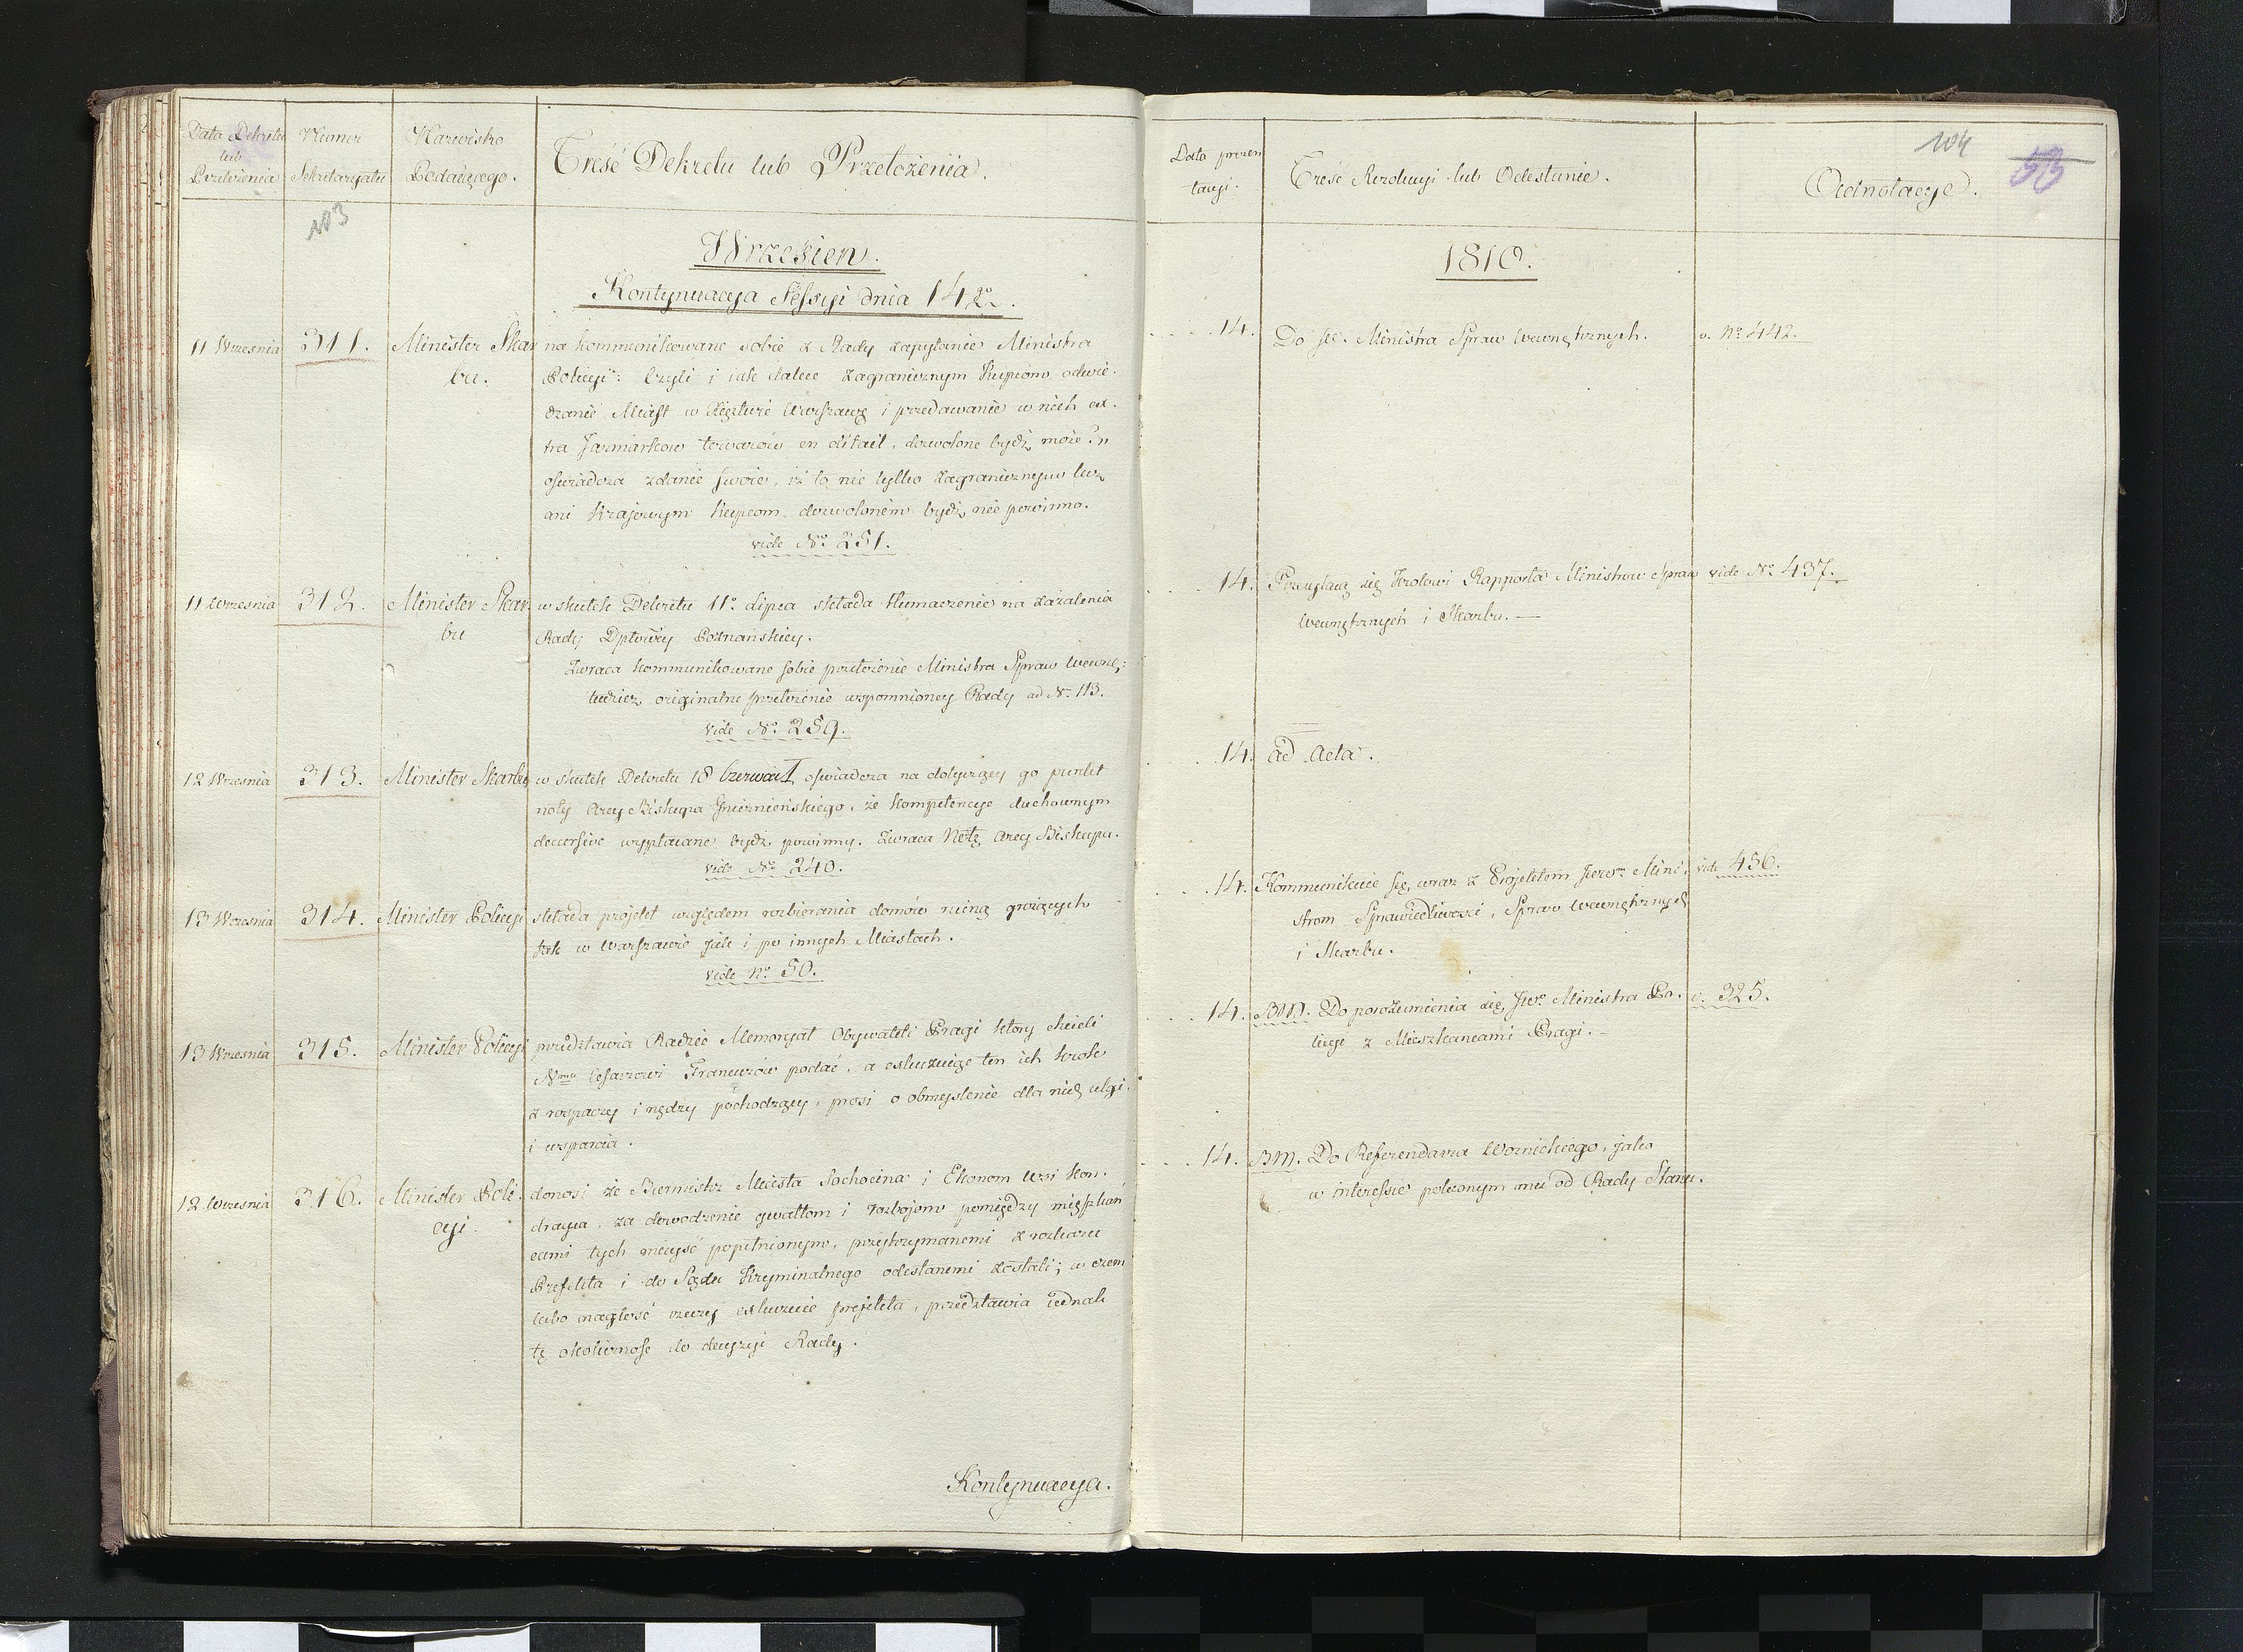 Data Dekretu
lub
Przełożenia
Numer
Sekretaryatu
Nazwisko
Podaiącego.
Treść Dekretu lub Przełożenia.
103
Wrzesien.
Kontynuacya Sessyi dnia 14go.
11 Wrzesnia
311.
Minister Skar
bu.
na kommunikowane sobie z Rady zapytanie Ministra
Policyi: Czyli i iak dalece zagranicznym Kupcom odwie-
dzanie Miast w Xięztwie Warszawę i przedawanie w nich ex-
tra Jarmarkow towarów en détail, dozwolone bydź może?"
oświadcza zdanie swoie, iż to nie tylko zagranicznym lecz
ani Krajowym Kupcom dozwolonem bydź nie powinno.
vide No. 251.
11 Wrzesnia
312.
Minister Skar
bu
w skutek Dekretu 11o. Lipca składa tłumaczenie na zażalenia
Rady Dptowey Poznańskiey.
Zwraca kommunikowane sobie przełożenie Ministra Spraw Wewnę:
tudzież originalne przełożenie wspomnioney Rady ad No. 113.
vide No. 259.
12 Wrzesnia
313.
Minister Skarbu
w skutek Dekretu 18 Czerwca oświadcza na dotyczący go punkt
noty Arcy Biskupa Gnieznieńskiego, że kompetencye duchownym
decursive wypłacane bydź powinny. Zwraca Notę Arcy Biskupa.
vide No. 240.
13 Wrzesnia
314.
Minister Policyi
składa projekt względem rozbierania domów ruiną grożących
tak w Warszawie jak i po innych Miastach.
vide No. 50.
13 Wrzesnia
315.
Minister Policyi
przedstawia Radzie Memoryał Obywateli Pragi który chcieli
Nmu Cesarzowi Francuzów podać, a exkuzuiąc ten ich krok
z rospaczy i nędzy pochodzący, prosi o obmyslenie dla nich ulgi
i wsparcia.
12 Wrzesnia
316.
Minister Poli
cyi.
donosi że Burmistrz Miasta Sochocina i Ekonom Wsi Kon-
drayca, za dowodzenie gwałtom i rozbojom pomiędzy mięszkań
cami tych mieysć popełnionym, przytrzymanemi z rozkazu
Prefekta i do Sądu Kryminalnego odesłanemi zostali; w czem
lubo nagłość rzeczy exkuzuie prefekta, przedstawia iednak
tę okoliczność do decyzyi Rady.
Kontynuacya.
Data prezen
tacyi.
Treść Rezolucyi lub Odesłanie.
Adnotacye.
104
53
1810.
14.
Do JW. Ministra Spraw Wewnętrznych.
v. No. 442.
14.
Przesyłaią się Krolowi Rapporta Ministrow Spraw
Wewnętrznych i Skarbu. —
vide No. 437.
14.
ad Acta.
14.
Kommunikuie się, wraz z Projektem JWm Mini-
strom Sprawiedliwości, Spraw Wewnętrznych
i Skarbu.
vide 456.
14.
BM. Do porozumienia się, JWo Ministra Po-
licyi z Mieszkancami Pragi. —
v. 325.
14.
BM. Do Referendarza Woznickiego, jako
w interessie poleconym mu od Rady Stanu.